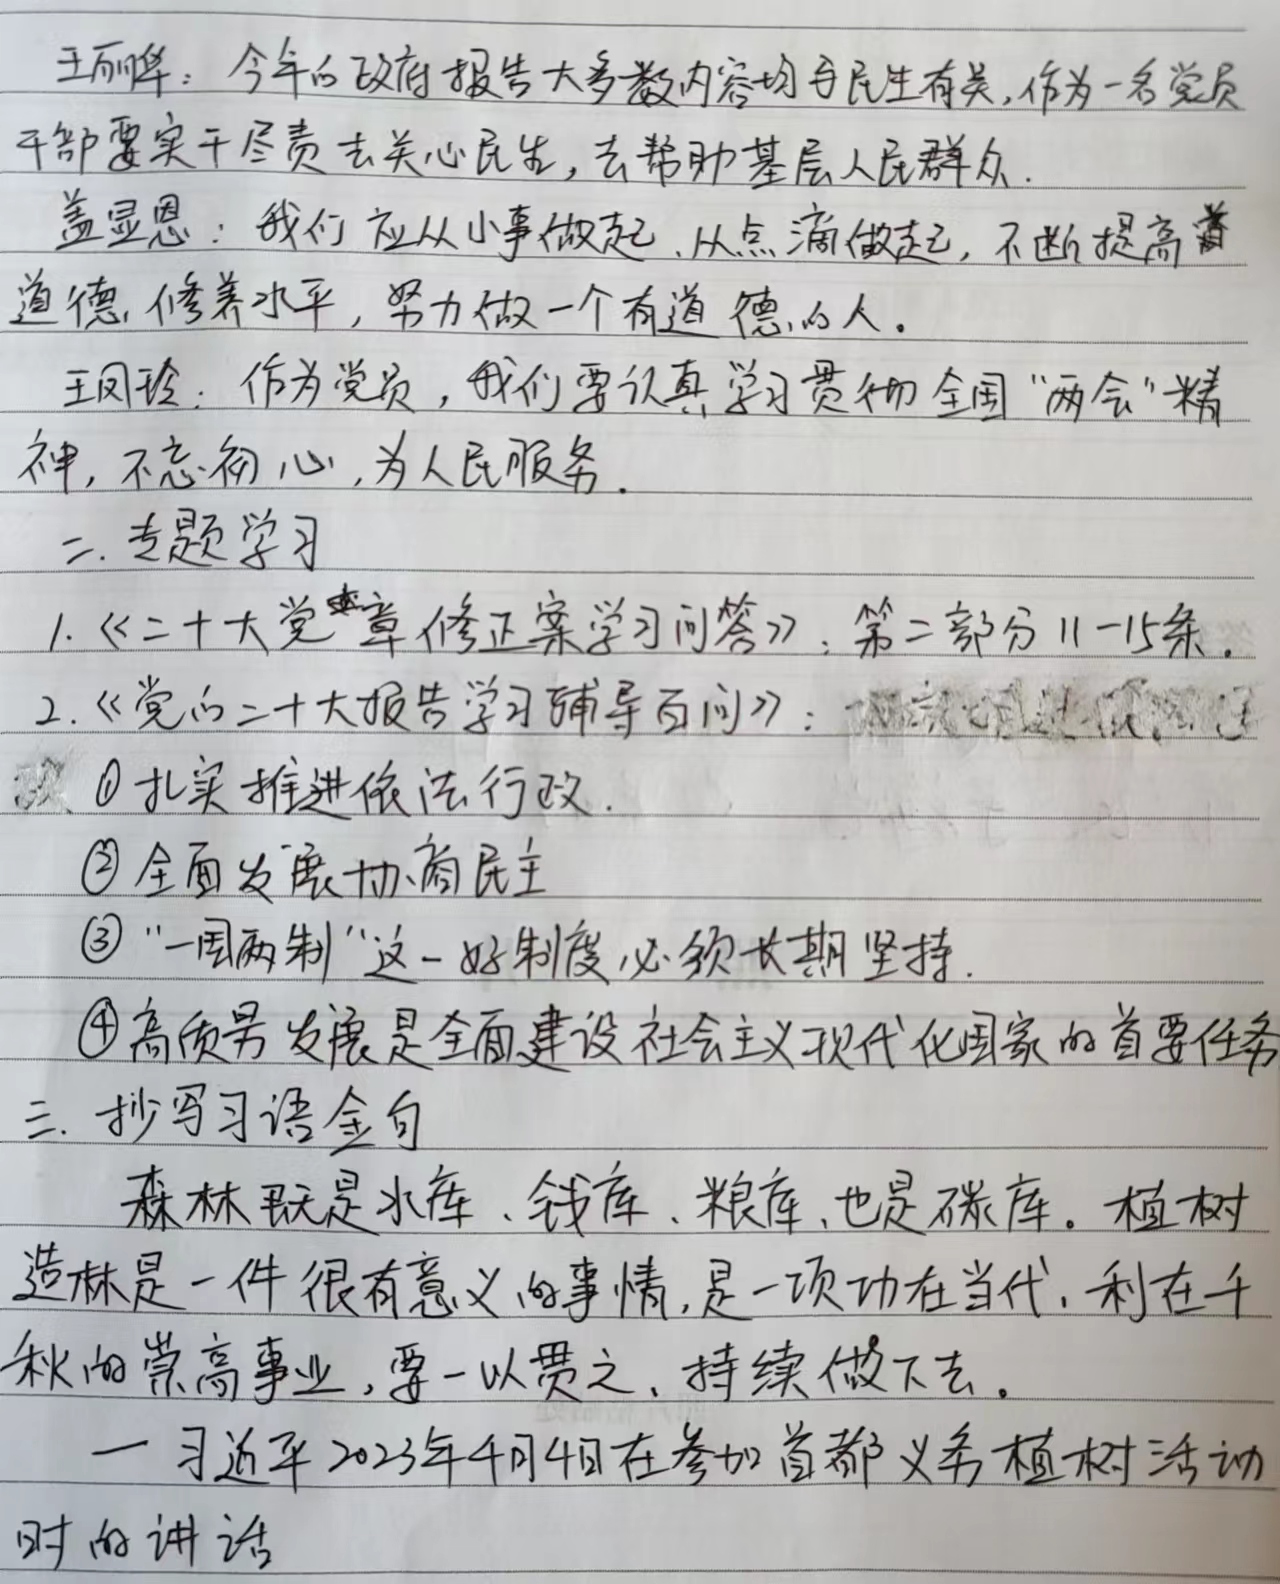 王丽华：今年的政府报告大多数内容均与民生有关，作为一名党员
干部要实干尽责去关心民生，去帮助基层人民群众.
盖显恩：我们应从小事做起、从点滴做起，不断提高
道德修养水平，努力做一个有道德的人。
王凤玲：作为党员，我们要认真学习贯彻全国“两会”精
神，不忘初心，为人民服务.
二.专题学习
1.《二十大党章修正案学习问答》：第二部分11-15条.
2.《党的二十大报告学习辅导百问》：
①扎实推进依法行政.
②全面发展协商民主
③“一国两制”这一好制度必须长期坚持.
④高质量发展是全面建设社会主义现代化国家的首要任务
三.抄写习语金句
森林既是水库、钱库、粮库、也是碳库。植树
造林是一件很有意义的事情,是一项功在当代、利在千
秋的崇高事业,要一以贯之、持续做下去。
—习近平2023年4月4日在参加首都义务植树活动
时的讲话